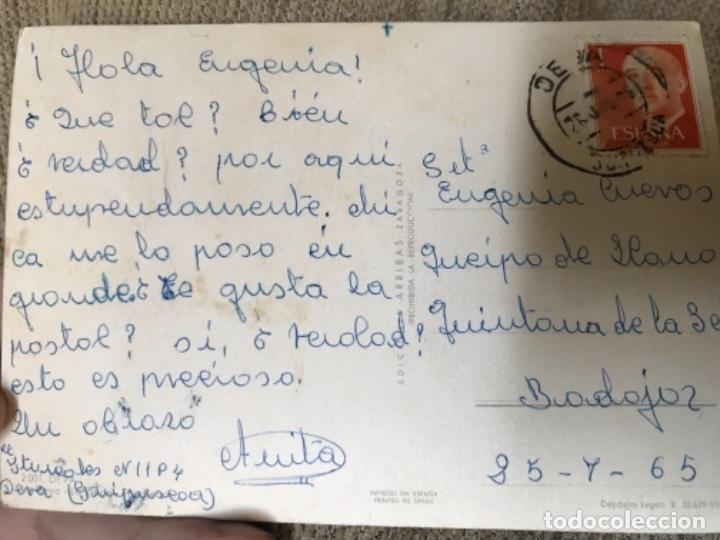 ¡Hola Eugenia!
¿Que tal? Bien
¿verdad? por aqui
estupendamente. chi
ca me lo paso en
grande. ¿te gusta la
postal? si, ¿verdad?
esto es precioso.
Un abrazo
Anita
N 11 P 4
Deva (Guipuzcoa)
Srtª
Eugenia Cuevas
Queipo de Llano
Quintana de la Se
Badajoz
25-7-65
ESPAÑA
EDICIONES ARRIBAS ZARAGOZA
(PROHIBIDA LA REPRODUCCION)
IMPRESO EN ESPAÑA
PRINTED IN SPAIN
Depósito Legal: B. 33.629
todocoleccion
todocoleccion.net